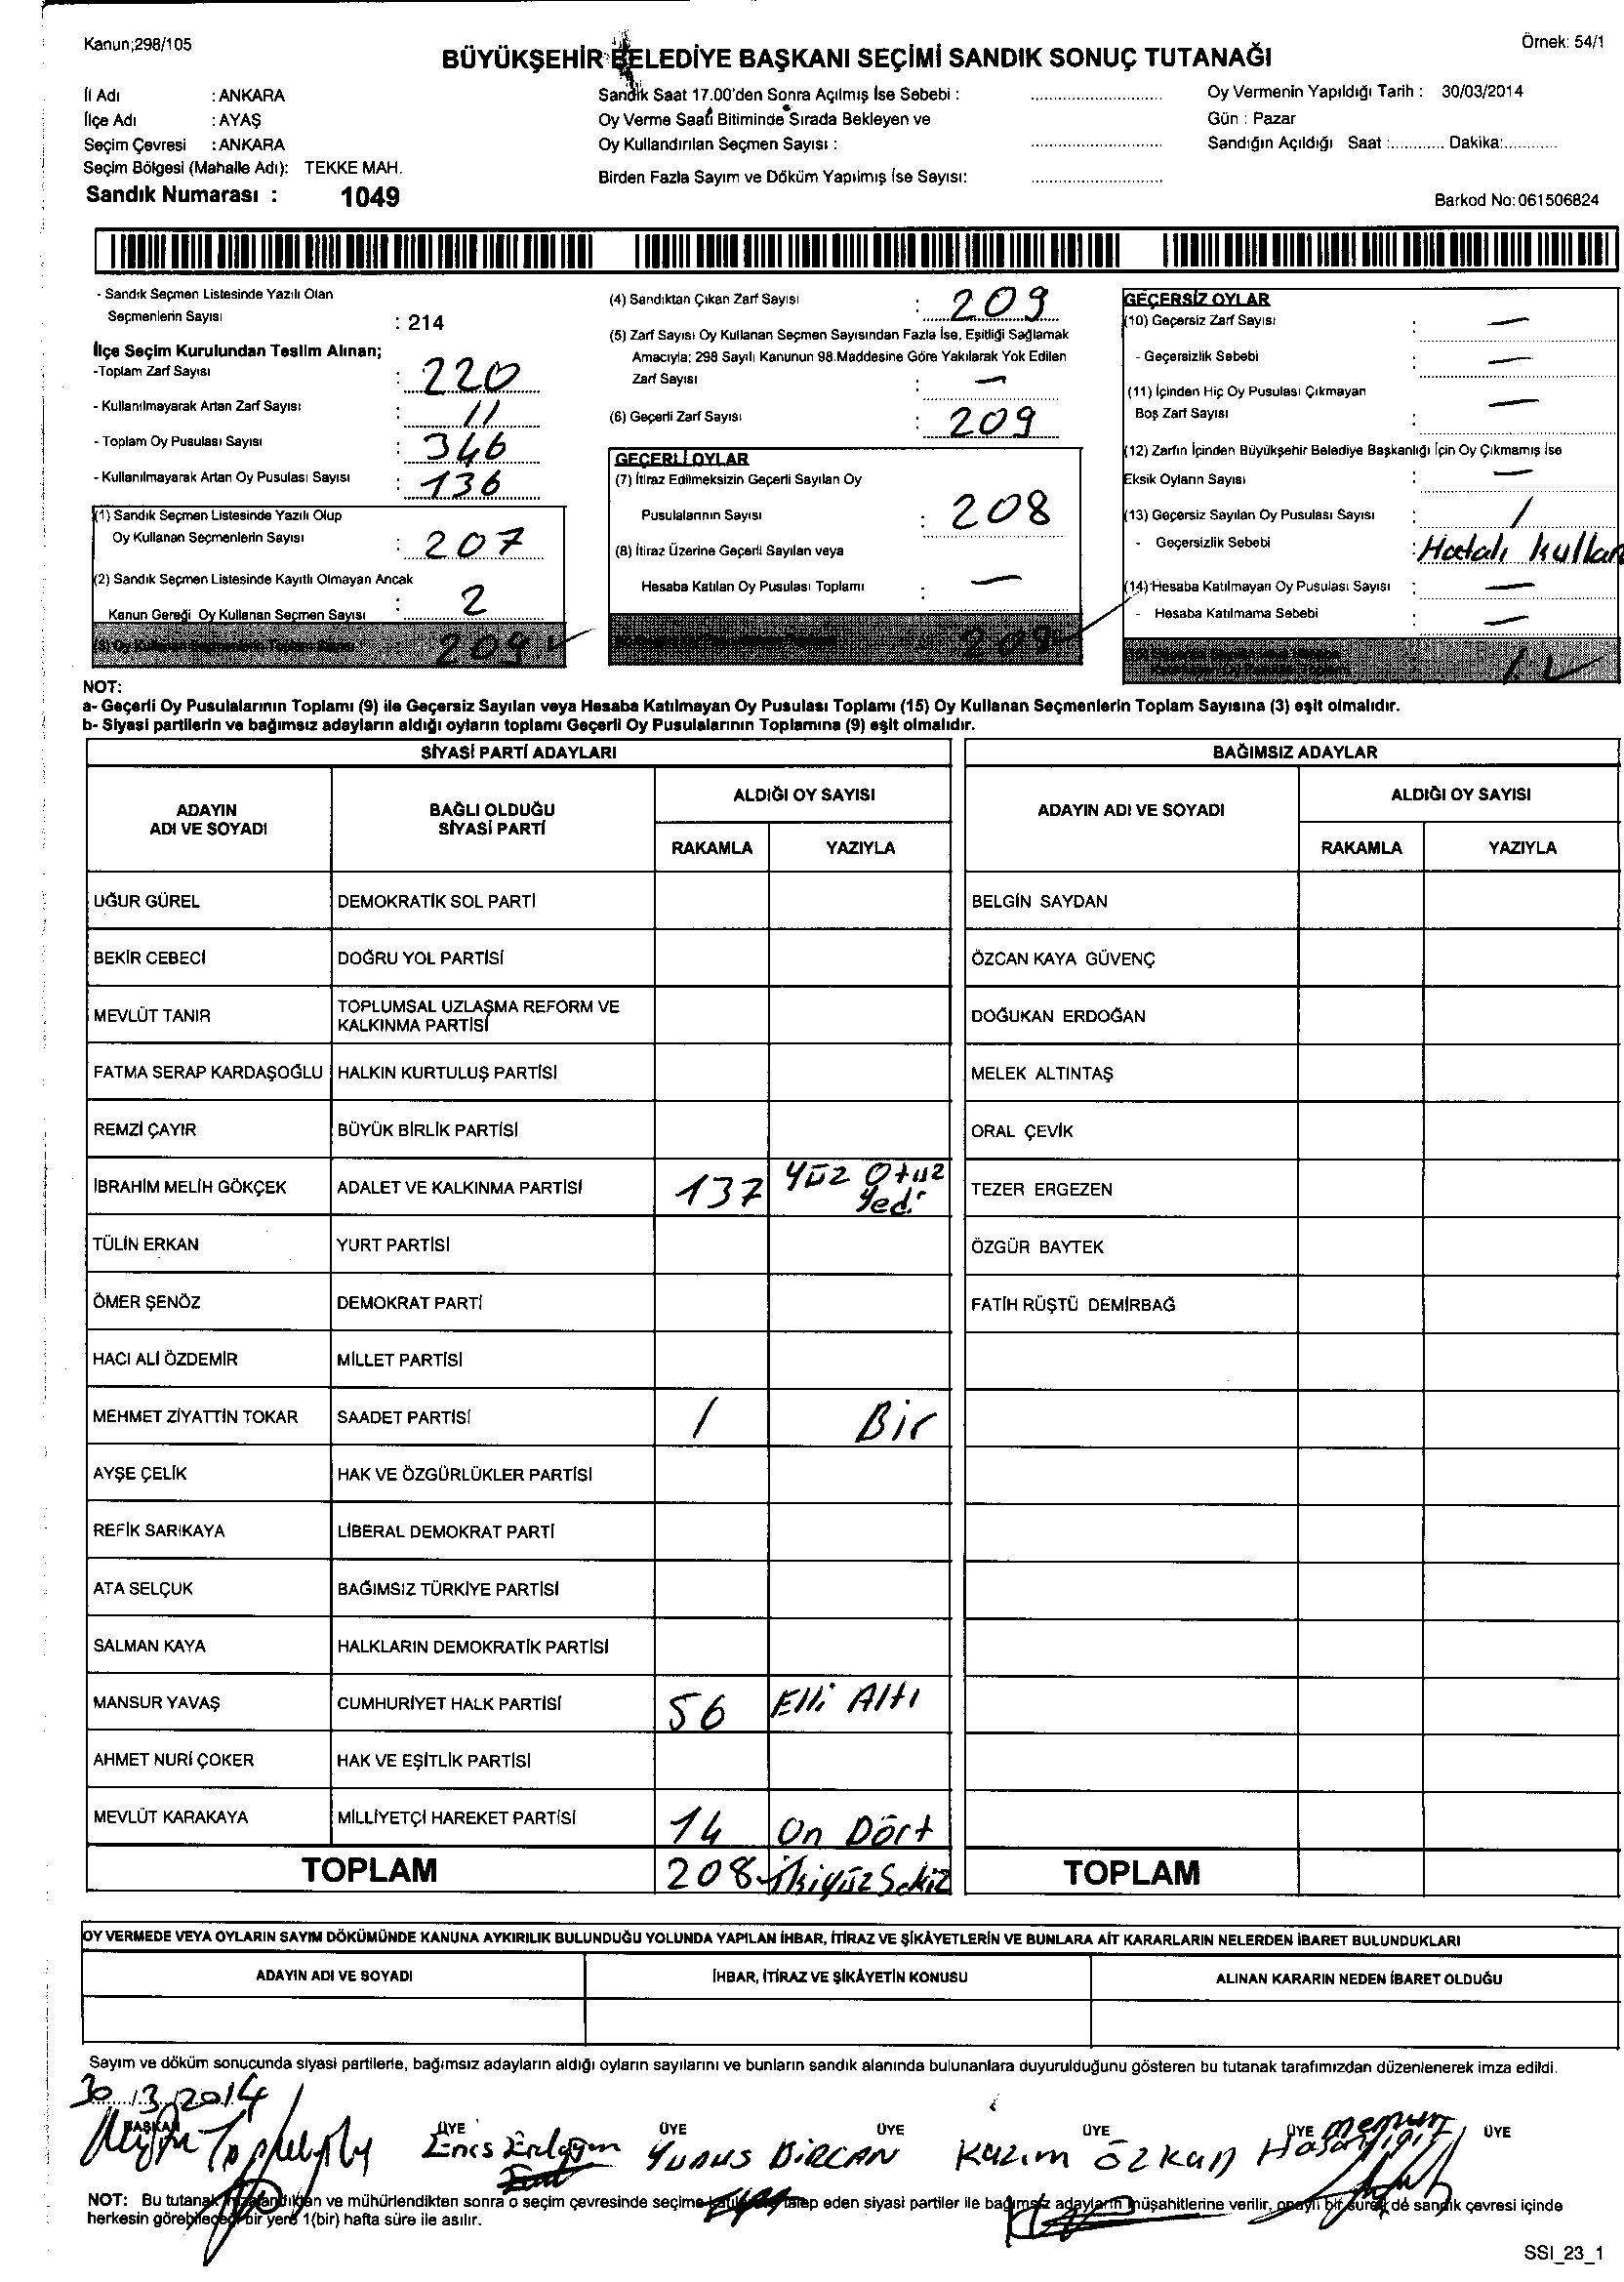 Kanun;298/105
Örnek: 54/1
BÜYÜKŞEHİR BELEDİYE BAŞKANI SEÇİMİ SANDIK SONUÇ TUTANAĞI
İl Adı : ANKARA
İlçe Adı : AYAŞ
Seçim Çevresi : ANKARA
Seçim Bölgesi (Mahalle Adı): TEKKE MAH.
Sandık Numarası : 1049
Sandık Saat 17.00'den Sonra Açılmış İse Sebebi :
Oy Verme Saati Bitiminde Sırada Bekleyen ve
Oy Kullandırılan Seçmen Sayısı :
Birden Fazla Sayım ve Döküm Yapılmış İse Sayısı:
Oy Vermenin Yapıldığı Tarih : 30/03/2014
Gün : Pazar
Sandığın Açıldığı Saat :........... Dakika:...........
Barkod No:061506824
- Sandık Seçmen Listesinde Yazılı Olan
Seçmenlerin Sayısı : 214
İlçe Seçim Kurulundan Teslim Alınan;
-Toplam Zarf Sayısı : 220
- Kullanılmayarak Artan Zarf Sayısı : 11
- Toplam Oy Pusulası Sayısı : 346
- Kullanılmayarak Artan Oy Pusulası Sayısı : 136
(1) Sandık Seçmen Listesinde Yazılı Olup
Oy Kullanan Seçmenlerin Sayısı : 207
(2) Sandık Seçmen Listesinde Kayıtlı Olmayan Ancak
Kanun Gereği Oy Kullanan Seçmen Sayısı : 2
(3) Oy Kullanan Seçmenlerin Toplam Sayısı 209
(4) Sandıktan Çıkan Zarf Sayısı : 209
(5) Zarf Sayısı Oy Kullanan Seçmen Sayısından Fazla İse, Eşitliği Sağlamak
Amacıyla; 298 Sayılı Kanunun 98.Maddesine Göre Yakılarak Yok Edilen
Zarf Sayısı : —
(6) Geçerli Zarf Sayısı : 209
GEÇERLİ OYLAR
(7) İtiraz Edilmeksizin Geçerli Sayılan Oy
Pusulalarının Sayısı : 208
(8) İtiraz Üzerine Geçerli Sayılan veya
Hesaba Katılan Oy Pusulası Toplamı : —
208
GEÇERSİZ OYLAR
(10) Geçersiz Zarf Sayısı : —
- Geçersizlik Sebebi : —
(11) İçinden Hiç Oy Pusulası Çıkmayan
Boş Zarf Sayısı : —
(12) Zarfın İçinden Büyükşehir Belediye Başkanlığı İçin Oy Çıkmamış İse
Eksik Oyların Sayısı : —
(13) Geçersiz Sayılan Oy Pusulası Sayısı : 1
- Geçersizlik Sebebi : Hatalı kullan
(14) Hesaba Katılmayan Oy Pusulası Sayısı : —
- Hesaba Katılmama Sebebi : —
1
NOT:
a- Geçerli Oy Pusulalarının Toplamı (9) ile Geçersiz Sayılan veya Hesaba Katılmayan Oy Pusulası Toplamı (15) Oy Kullanan Seçmenlerin Toplam Sayısına (3) eşit olmalıdır.
b- Siyasi partilerin ve bağımsız adayların aldığı oyların toplamı Geçerli Oy Pusulalarının Toplamına (9) eşit olmalıdır.
SİYASİ PARTİ ADAYLARI
ADAYIN
ADI VE SOYADI
BAĞLI OLDUĞU
SİYASİ PARTİ
ALDIĞI OY SAYISI
RAKAMLA YAZIYLA
UĞUR GÜREL DEMOKRATİK SOL PARTİ
BEKİR CEBECİ DOĞRU YOL PARTİSİ
MEVLÜT TANIR TOPLUMSAL UZLAŞMA REFORM VE
KALKINMA PARTİSİ
FATMA SERAP KARDAŞOĞLU HALKIN KURTULUŞ PARTİSİ
REMZİ ÇAYIR BÜYÜK BİRLİK PARTİSİ
İBRAHİM MELİH GÖKÇEK ADALET VE KALKINMA PARTİSİ 137 Yüz Otuz
Yedi
TÜLİN ERKAN YURT PARTİSİ
ÖMER ŞENÖZ DEMOKRAT PARTİ
HACI ALİ ÖZDEMİR MİLLET PARTİSİ
MEHMET ZİYATTİN TOKAR SAADET PARTİSİ 1 Bir
AYŞE ÇELİK HAK VE ÖZGÜRLÜKLER PARTİSİ
REFİK SARIKAYA LİBERAL DEMOKRAT PARTİ
ATA SELÇUK BAĞIMSIZ TÜRKİYE PARTİSİ
SALMAN KAYA HALKLARIN DEMOKRATİK PARTİSİ
MANSUR YAVAŞ CUMHURİYET HALK PARTİSİ 56 Elli Altı
AHMET NURİ ÇOKER HAK VE EŞİTLİK PARTİSİ
MEVLÜT KARAKAYA MİLLİYETÇİ HAREKET PARTİSİ 14 On Dört
TOPLAM 208 İkiyüz Sekiz
BAĞIMSIZ ADAYLAR
ADAYIN ADI VE SOYADI
ALDIĞI OY SAYISI
RAKAMLA YAZIYLA
BELGİN SAYDAN
ÖZCAN KAYA GÜVENÇ
DOĞUKAN ERDOĞAN
MELEK ALTINTAŞ
ORAL ÇEVİK
TEZER ERGEZEN
ÖZGÜR BAYTEK
FATİH RÜŞTÜ DEMİRBAĞ
TOPLAM
OY VERMEDE VEYA OYLARIN SAYIM DÖKÜMÜNDE KANUNA AYKIRILIK BULUNDUĞU YOLUNDA YAPILAN İHBAR, İTİRAZ VE ŞİKÂYETLERİN VE BUNLARA AİT KARARLARIN NELERDEN İBARET BULUNDUKLARI
ADAYIN ADI VE SOYADI İHBAR, İTİRAZ VE ŞİKÂYETİN KONUSU ALINAN KARARIN NEDEN İBARET OLDUĞU
Sayım ve döküm sonucunda siyasi partilerle, bağımsız adayların aldığı oyların sayılarını ve bunların sandık alanında bulunanlara duyurulduğunu gösteren bu tutanak tarafımızdan düzenlenerek imza edildi.
30/3/2014
BAŞKAN ÜYE ÜYE ÜYE ÜYE ÜYE ÜYE
Enes Yunus BİRCAN Kazım Özkan
NOT: Bu tutanak ve mühürlendikten sonra o seçim çevresinde seçime talep eden siyasi partiler ile bağımsız adayların müşahitlerine verilir, onaylı bir sureti de sandık çevresi içinde
herkesin görebileceği bir yere 1(bir) hafta süre ile asılır.
SSI_23_1